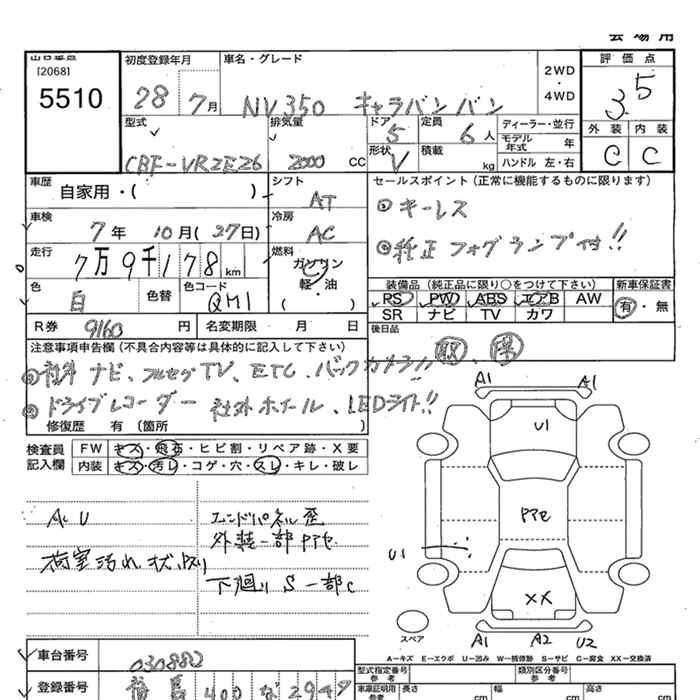 会場用
出品番号
[2068]
5510
初度登録年月
28 7月
車名・グレード
NV350 キャラバンバン
2WD
・
4WD
評価点
3.5
外装 内装
C C
型式
CBF-VR2E26
排気量
2000 CC
ドア 5
形状 V
定員 6 人
積載 kg
ディーラー・並行
モデル年式 年
ハンドル 左・右
車歴 自家用・( )
シフト AT
車検 7年10月(27日)
冷房 AC
走行 7万9千178km
燃料 ガソリン
軽・油
( )
色 白 色替
色コード QM1
R券 9160 円
名変期限 月 日
セールスポイント(正常に機能するものに限ります)
① キーレス
② 純正フォグランプ付!!
装備品(純正品に限り○をつけて下さい)
PS PW ABS エアB AW
SR ナビ TV カワ
新車保証書
有・無
後日品
取、保
注意事項申告欄(不具合内容等は具体的に記入して下さい)
① 社外ナビ、フルセグTV、ETC、バックカメラ!!
② ドライブレコーダー 社外ホイール、LEDライト!!
修復歴 有(箇所 )
検査員記入欄
FW キズ・飛石・ヒビ割・リペア跡・X要
内装 キズ・汚レ・コゲ・穴・スレ・キレ・破レ
A,U
荷室汚れ,状,凹
エンドパネル歪
外装一部PPセ
下廻りS一部C
A1 A1
U1
PPセ
U1
XX
A1 A2 U2
スペア
A-キズ E-エクボ U-凹み W-補修跡 S-サビ C-腐食 XX-交換済
車台番号 030882
登録番号 福島 400 な 2949
型式指定番号
参考
類別区分番号
参考
車庫証明用
参考
長さ cm
幅 cm
高さ cm